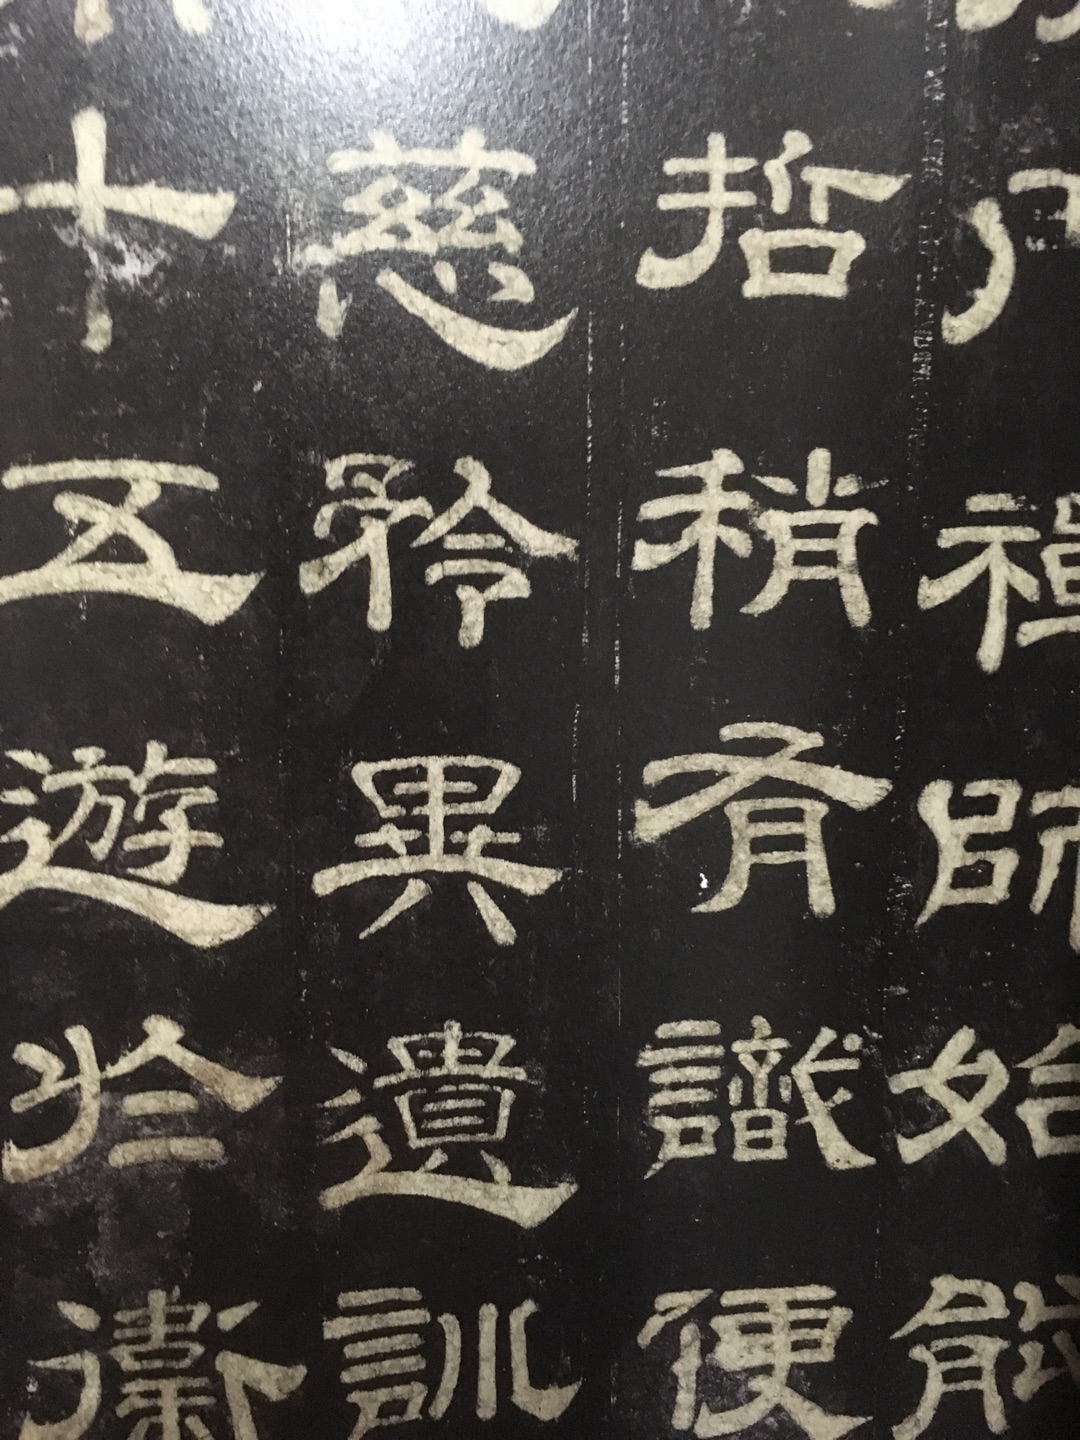 禪師始能
哲稍有識便
慈矜異遺訓
十五遊於衛